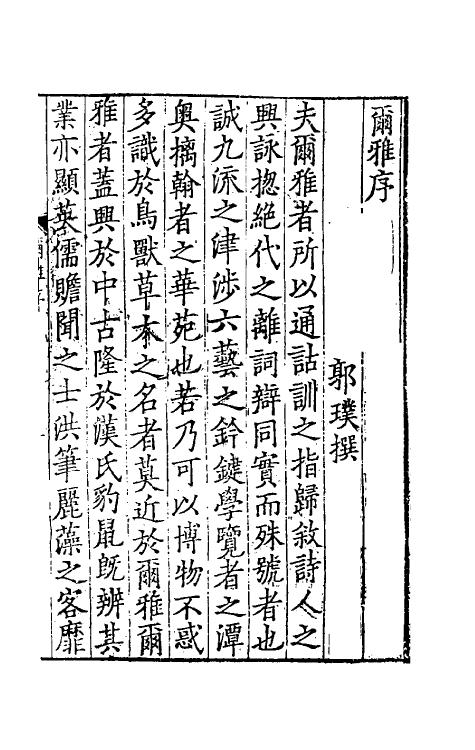 爾雅序
郭璞撰
夫爾雅者所以通詁訓之指歸敘詩人之
興詠揔絕代之離詞辯同實而殊號者也
誠九流之津涉六藝之鈐鍵學覽者之潭
奥摛翰者之華苑也若乃可以博物不惑
多識於鳥獸草木之名者莫近於爾雅爾
雅者蓋興於中古隆於漢氏豹鼠旣辨其
業亦顯英儒贍聞之士洪筆麗藻之客靡